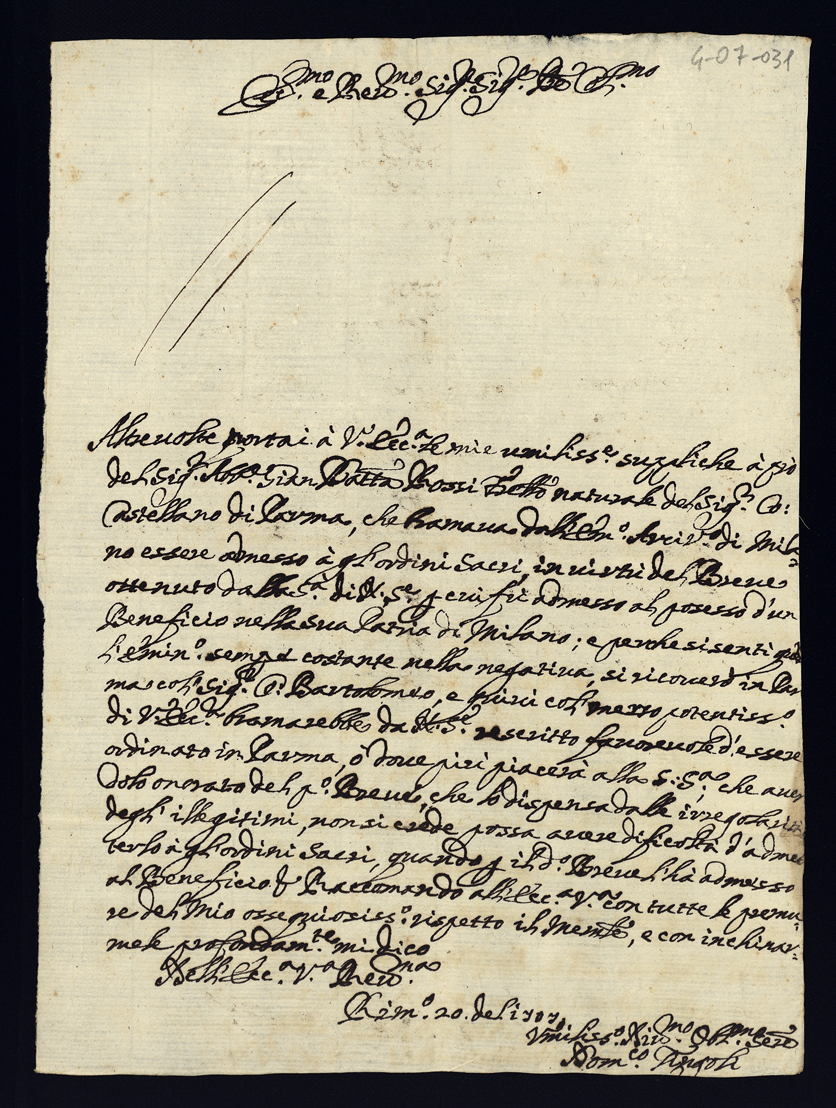 4-07-031
Ecc.mo e Rev.mo Sig.r Sig.r P.ne Col.mo
Altre volte portai à V.ra Ecc.a le mie umiliss.e suppliche à prò
del Sig.r Gian Batta Rossi naturale del Sig.r Co:
Castellano di Parma, che bramava dall'Em.o Arciv.o di Mila
no essere admesso à gli ordini Sacri, in virtù del Breve
ottenuto dalla S.tà di N. S.re p cui fù admesso al posesso d'un
Beneficio nella sua Patria di Milano; e perche si senti
l'emin.o sempre costante nella negativa, si ricoverò in Par
ma col Sig.r Co: Bartolomeo, e quivi col mezzo potentiss.o
di V. Ecc.a bramarebbe da N. S.re rescritto favorevole d'essere
ordinato in Parma, ò dove più piacerà alla S. S.tà, che aven
dolo onorato del p.o Breve, che lo dispensa dalle irregolarità
degl' illegitimi, non si crede possa avere dificoltà d'admet
terlo à gli ordini Sacri, quando p il d.o Breve l'hà admesso
al Beneficio. Raccomando all'Ecc.a V.a con tutte le premu:
re del Mio ossequiosiss.o rispetto il, e con inchinar:
mele profondam.te mi dico
Dell'Ecc.a V.a Rev.ma
Rim.o 20. del 1707
Umiliss.o Div.mo Obl.mo Serv.
Dom.co Tingoli